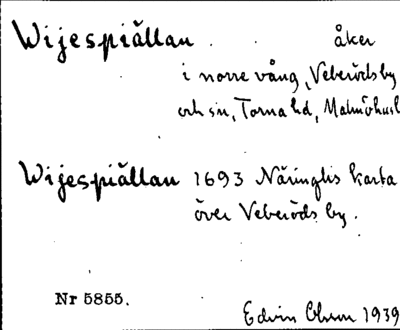 Wijespiällan åker
i norre vång, Veberöds by
och sn, Torna hd, Malmöhus l
Wijespiällan 1693 Näringlis karta
över Veberöds by.
Nr 5855.
Edvin Ohlson 1939